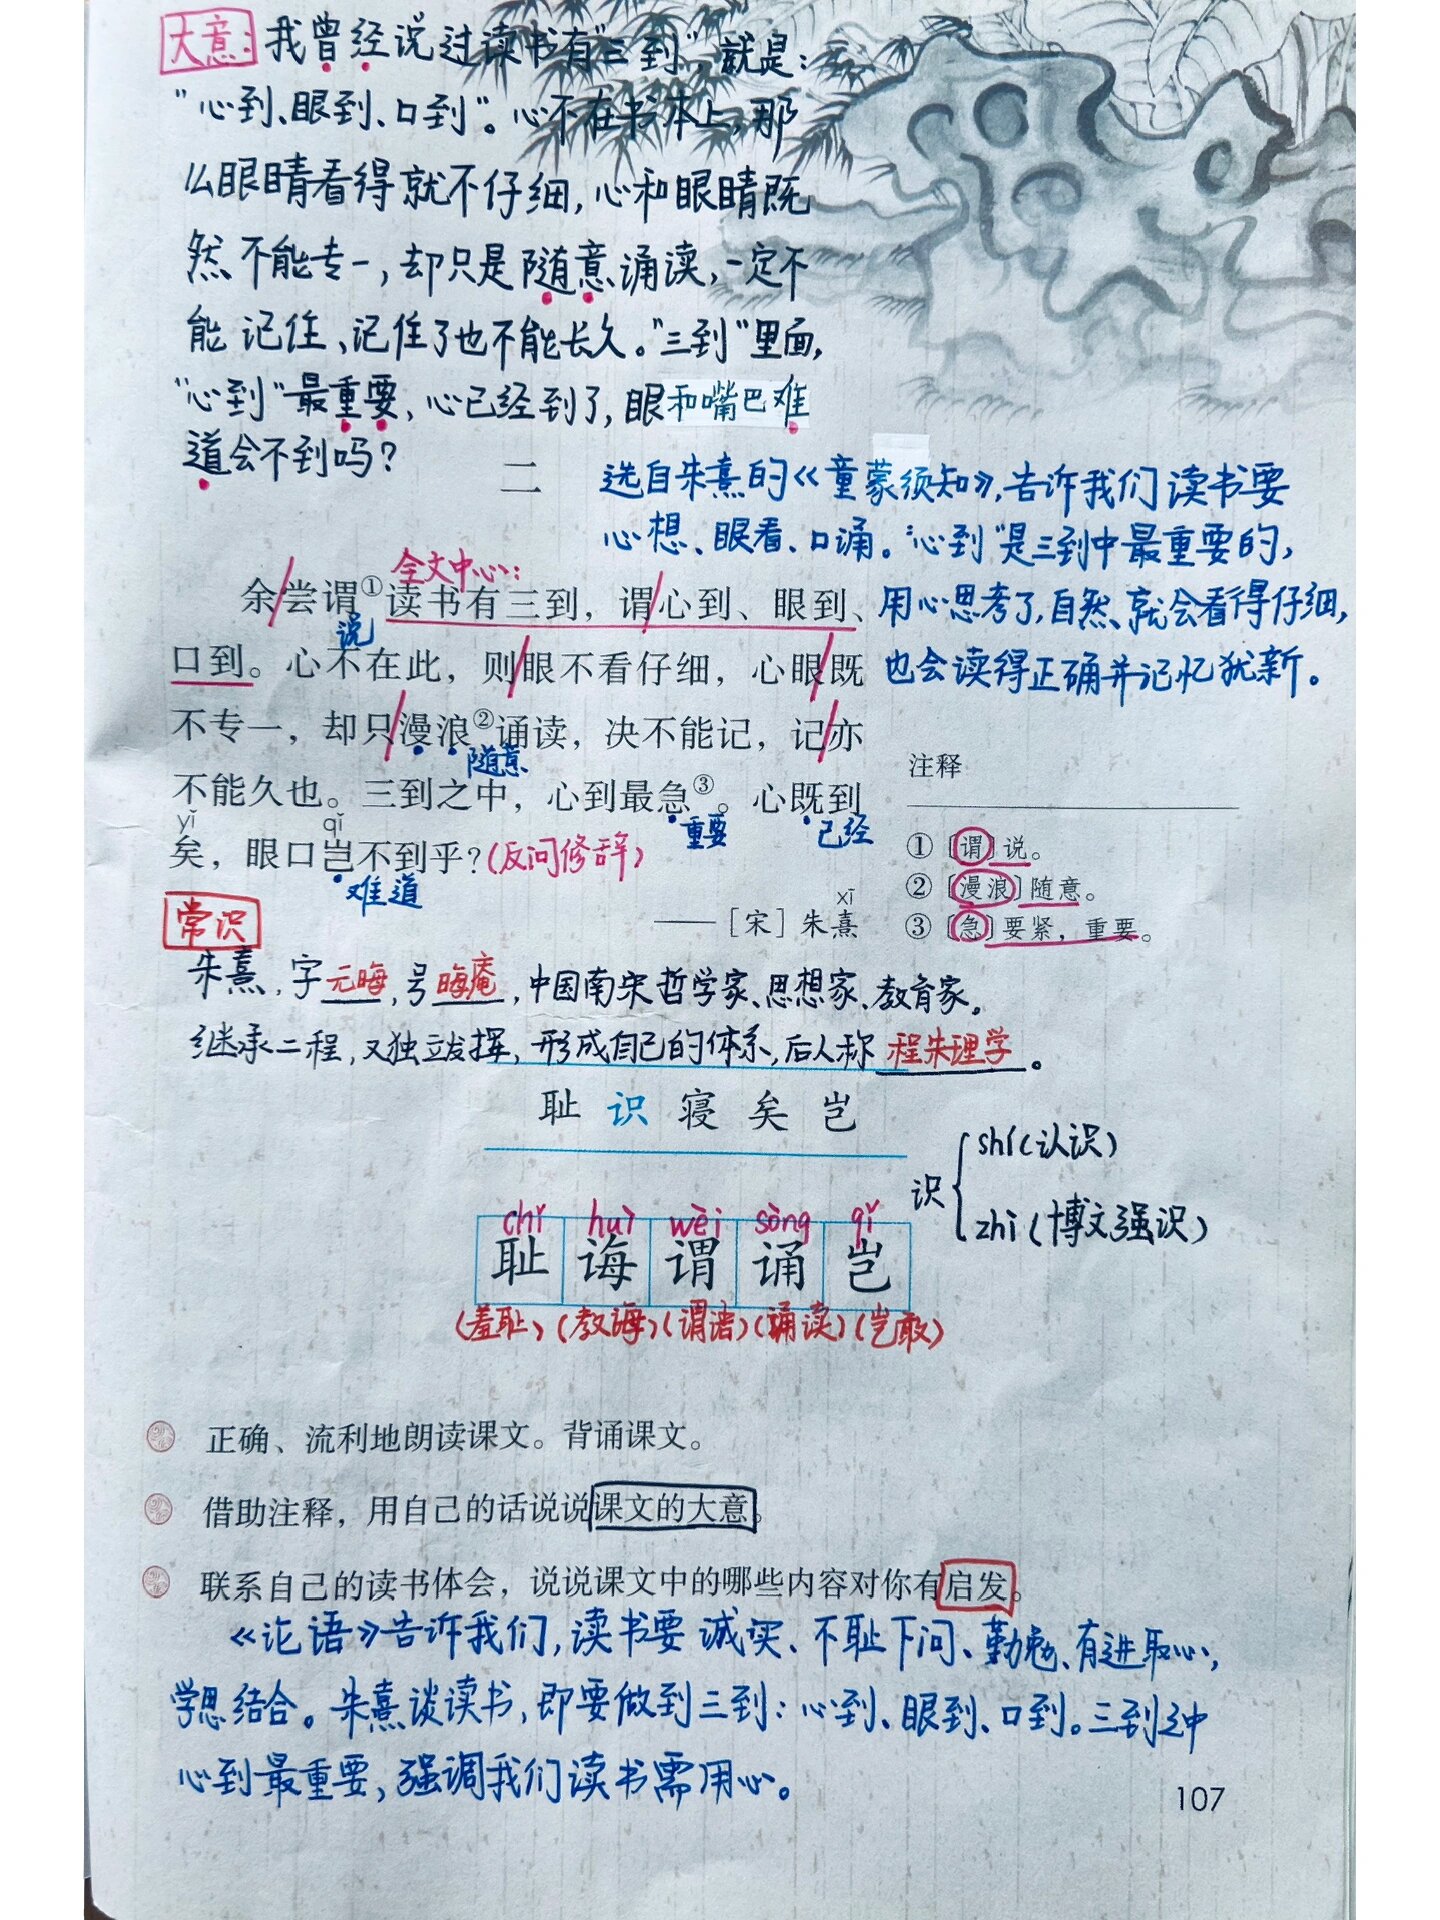 大意：我曾经说过读书有“三到”，就是：
“心到、眼到、口到”。心不在书本上，那
么眼睛看得就不仔细，心和眼睛既
然不能专一，却只是随意诵读，一定不
能记住，记住了也不能长久。“三到”里面，
“心到”最重要，心已经到了，眼和嘴巴难
道会不到吗？
二
选自朱熹的《童蒙须知》，告诉我们读书要
心想、眼看、口诵。“心到”是三到中最重要的，
用心思考了，自然就会看得仔细，
也会读得正确并记忆犹新。
全文中心：
余/尝谓①读书有三到，谓/心到、眼到、
说
口到。心不在此，则/眼不看仔细，心眼/既
不专一，却只/漫浪②诵读，决不能记，记/亦
随意
不能久也。三到之中，心到最急③。心既到
重要 已经
yǐ qǐ
矣，眼口岂不到乎？(反问修辞)
难道
xī
——［宋］朱熹
注释
①［谓］说。
②［漫浪］随意。
③［急］要紧，重要。
常识
朱熹，字元晦，号晦庵，中国南宋哲学家、思想家、教育家。
继承二程，又独立发挥，形成自己的体系，后人称程朱理学。
耻 识 寝 矣 岂
识 shí(认识)
zhì(博文强识)
chǐ huì wèi sòng qǐ
耻 诲 谓 诵 岂
(羞耻)(教诲)(谓语)(诵读)(岂敢)
正确、流利地朗读课文。背诵课文。
借助注释，用自己的话说说课文的大意。
联系自己的读书体会，说说课文中的哪些内容对你有启发。
《论语》告诉我们，读书要诚实、不耻下问、勤勉、有进取心，
学思结合。朱熹谈读书，即要做到三到：心到、眼到、口到。三到之中
心到最重要，强调我们读书需用心。
107